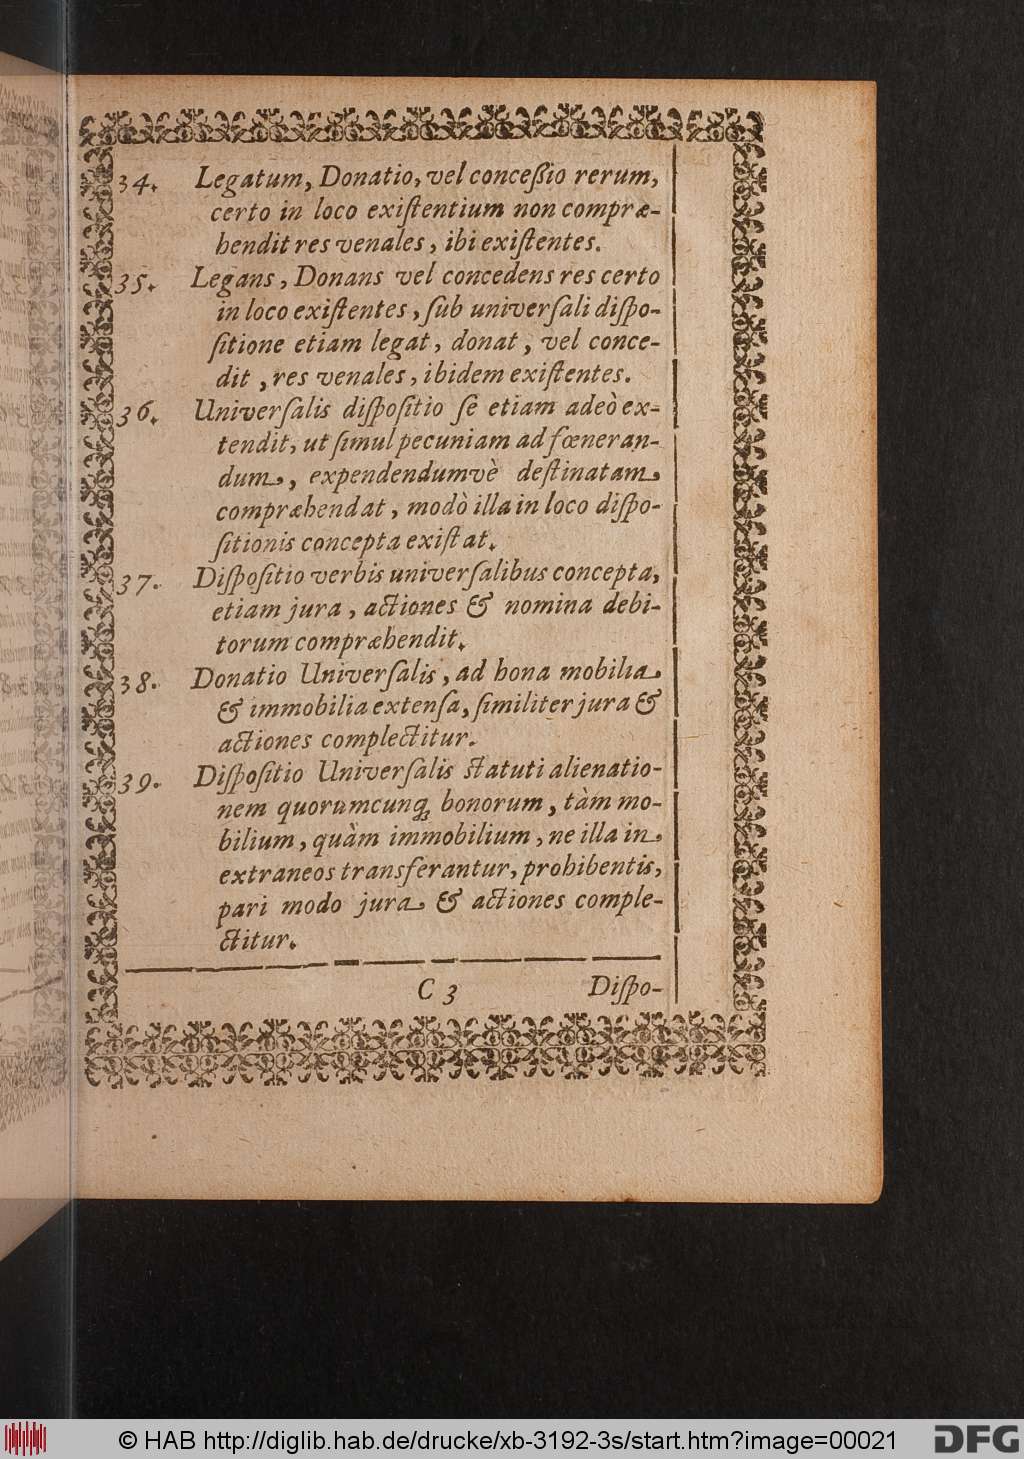 34. Legatum, Donatio, vel conceßio rerum,
certo in loco exiſtentium non compræ-
hendit res venales, ibi exiſtentes.
35. Legans, Donans vel concedens res certo
in loco exiſtentes, ſub univerſali diſpo-
ſitione etiam legat, donat, vel conce-
dit, res venales, ibidem exiſtentes.
36. Univerſalis diſpoſitio ſe etiam adeò ex-
tendit, ut ſimul pecuniam ad fœneran-
dum, expendendumvè deſtinatam
compræhendat, modò illa in loco diſpo-
ſitionis concepta exiſtat.
37. Diſpoſitio verbis univerſalibus concepta,
etiam jura, actiones & nomina debi-
torum compræhendit.
38. Donatio Univerſalis, ad bona mobilia
& immobilia extenſa, ſimiliter jura &
actiones complectitur.
39. Diſpoſitio Univerſalis ſtatuti alienatio-
nem quorumcunq; bonorum, tàm mo-
bilium, quàm immobilium, ne illa in
extraneos transferantur, prohibentis,
pari modo jura & actiones comple-
ctitur.
C 3 Diſpo-
© HAB http://diglib.hab.de/drucke/xb-3192-3s/start.htm?image=00021
DFG